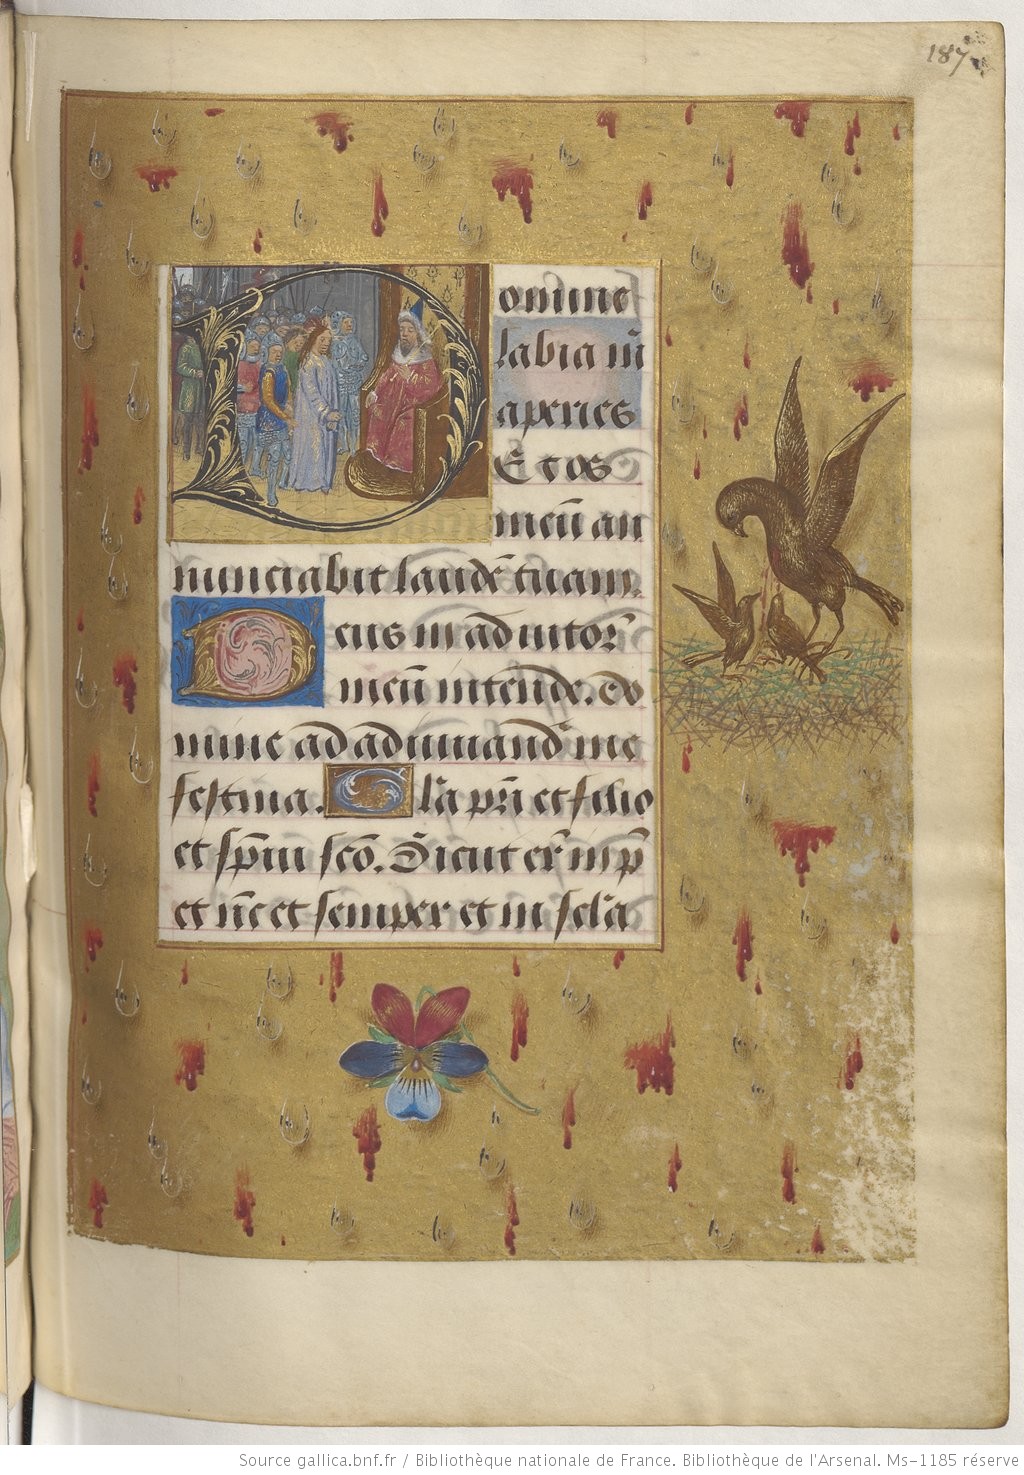 187
Domine
labia m̄
aperies
Et os
meū an
nunciabit laudē tuam.
Deus in adiutor̄
meū intende. do
mine ad adiuuand̄ me
festina. Gl̄a pr̄i et filio
et sp̄iui sc̄o. Sicut er̄ in p̄
et n̄c et semper et in sel̄a
Source gallica.bnf.fr / Bibliothèque nationale de France. Bibliothèque de l'Arsenal. Ms-1185 réserve